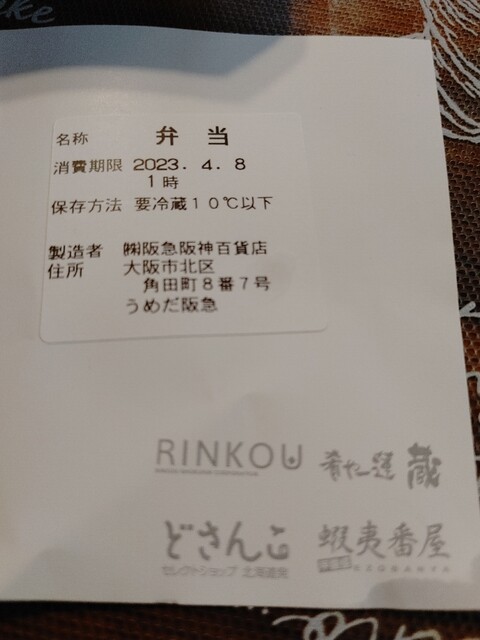 名称 弁当
消費期限 2023. 4. 8
1時
保存方法 要冷蔵10℃以下
製造者 ㈱阪急阪神百貨店
住所 大阪市北区
角田町8番7号
うめだ阪急
RINKOU
蔵
どさんこ
セレクトショップ 北海道発
蝦夷番屋
EZOBANYA